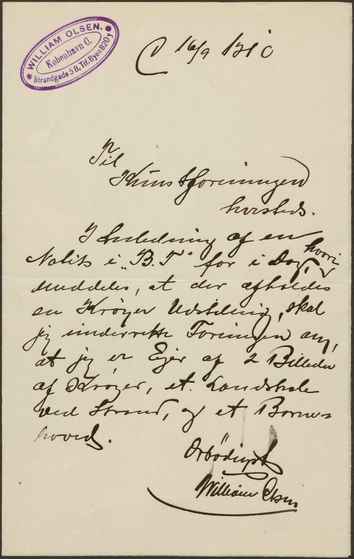 WILLIAM OLSEN.
København C.
Strandgade 3 B. Tlf. Byen 820 y
16/9 1910
Til
Kunstforeningen
hersteds.
I Anledning af en
Notits i "B.T" for i Dag, hvori
meddeles, at der afholdes
en Krøyer Udstilling, skal
jeg underrette Foreningen om,
at jeg er Ejer af 2 Billeder
af Krøyer, et Landskab
ved Strand, og et Barne-
hoved.
Ærbødigst
William Olsen